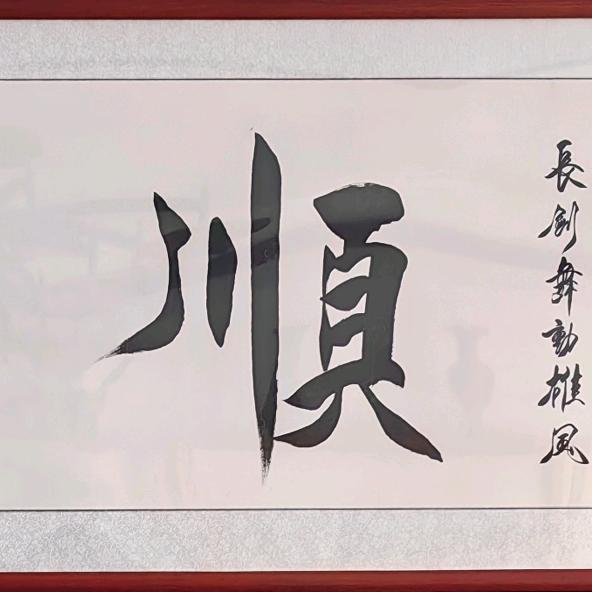 長劍舞動雄風
順